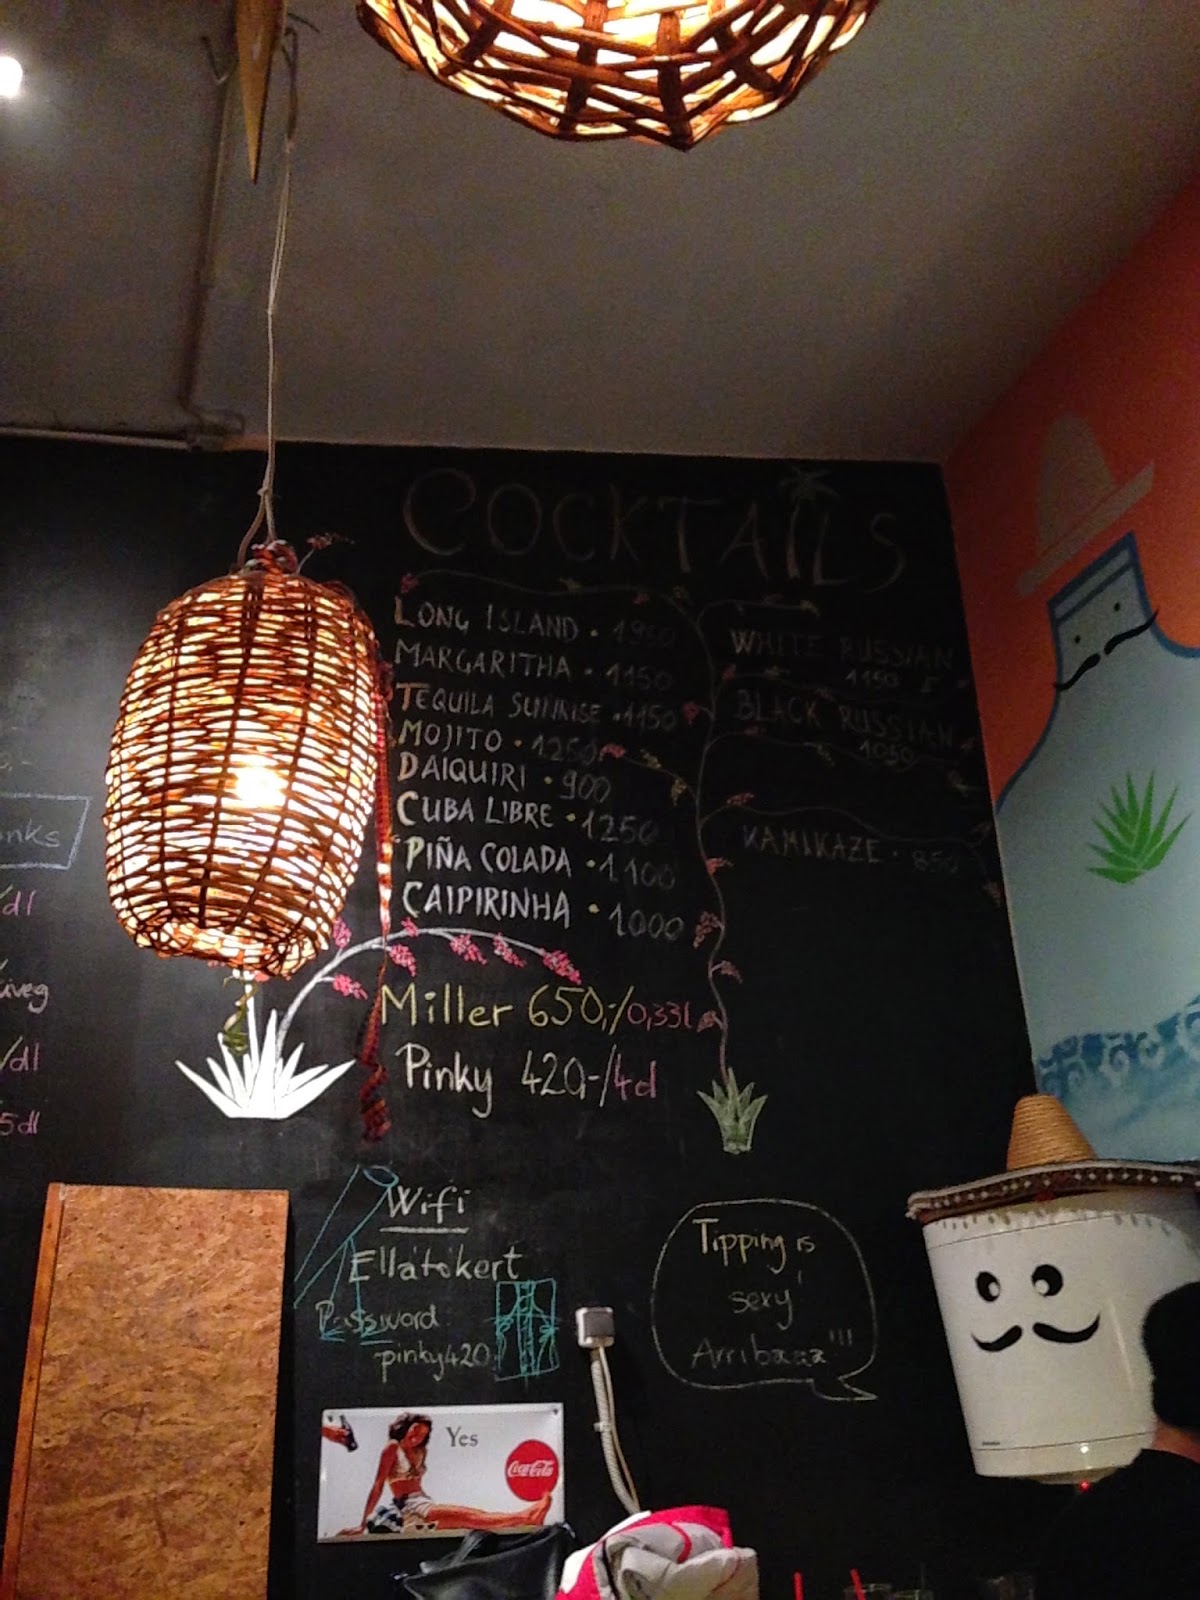 COCKTAILS
LONG ISLAND • 1950
MARGARITHA • 1150
TEQUILA SUNRISE • 1150
MOJITO • 1250
DAIQUIRI • 900
CUBA LIBRE • 1250
PIÑA COLADA • 1100
CAIPIRINHA • 1000
WHITE RUSSIAN
1150
BLACK RUSSIAN
1050
KAMIKAZE • 850
Miller 650,-/0,33l
Pinky 420,-/4d
/dl
üveg
/dl
5dl
Wifi
Ellátókert
Password
pinky420
Tipping is
sexy
Arribaaa!!!
Yes
Coca-Cola